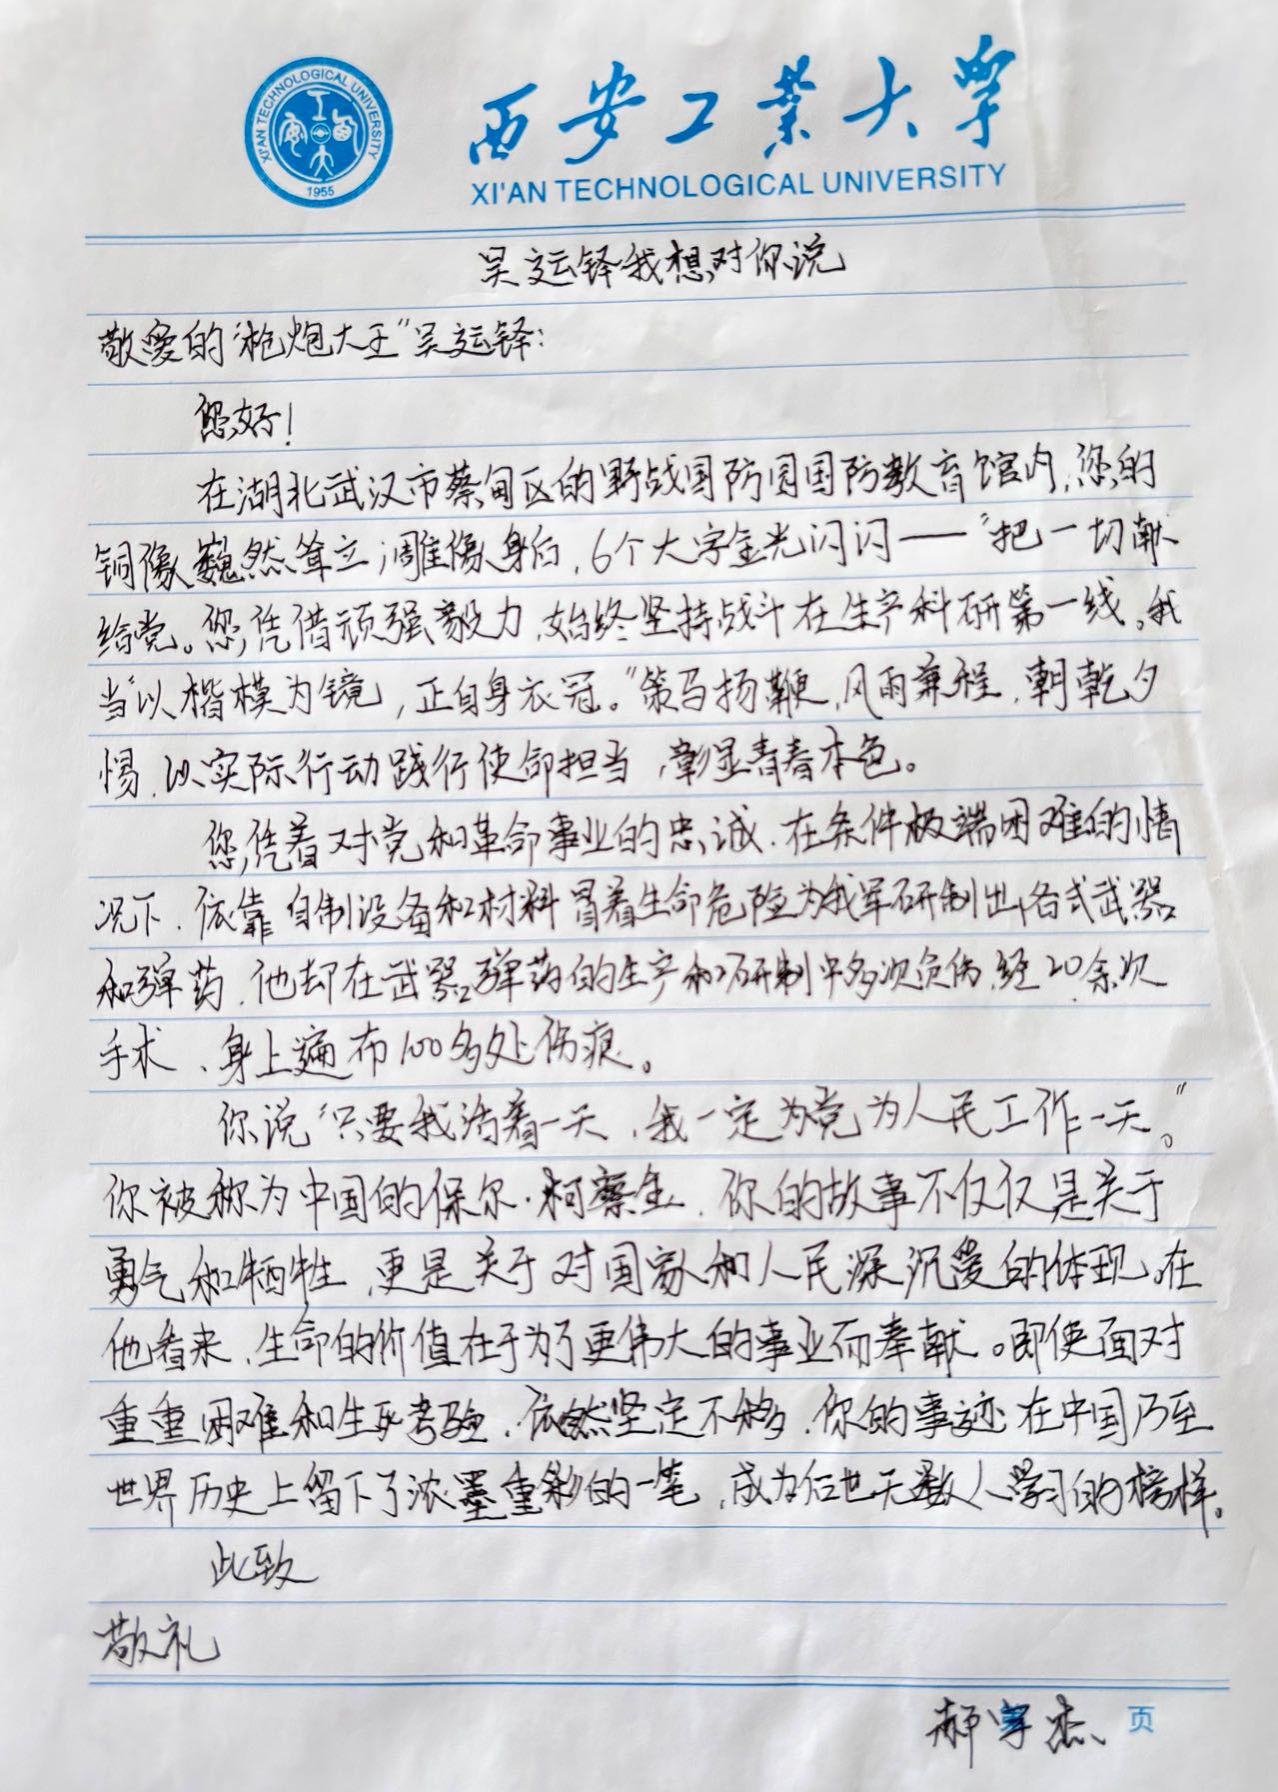 XI'AN TECHNOLOGICAL UNIVERSITY
1955
西安工业大学
XI'AN TECHNOLOGICAL UNIVERSITY
吴运铎我想对你说
敬爱的“枪炮大王”吴运铎：
您好！
在湖北武汉市蔡甸区的野战国防园国防教育馆内，您的
铜像巍然耸立，雕像身后，6个大字金光闪闪——“把一切献
给党。您凭借顽强毅力，始终坚持战斗在生产科研第一线。我
当“以楷模为镜，正自身衣冠。”策马扬鞭，风雨兼程，朝乾夕
惕，以实际行动践行使命担当，彰显青春本色。
您凭着对党和革命事业的忠诚，在条件极端困难的情
况下，依靠自制设备和材料冒着生命危险为我军研制出各式武器
和弹药，他却在武器弹药的生产和研制中多次负伤，经20余次
手术，身上遍布100多处伤痕。
你说“只要我活着一天，我一定为党为人民工作一天。”
你被称为中国的保尔·柯察金，你的故事不仅仅是关于
勇气和牺牲，更是关于对国家和人民深沉爱的体现。在
他看来，生命的价值在于为了更伟大的事业而奉献。即使面对
重重困难和生死考验，依然坚定不移，你的事迹在中国乃至
世界历史上留下了浓墨重彩的一笔，成为后世无数人学习的榜样。
此致
敬礼
郝宇杰 页